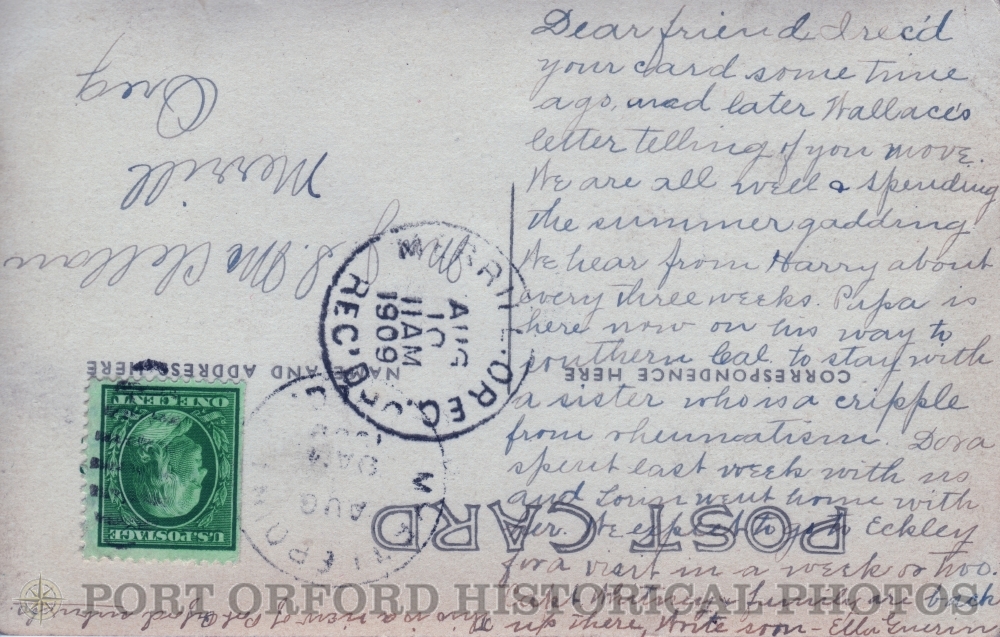 Dear friend, I rec'd
your card some time
ago, and later Wallace's
letter telling of you move.
We are all well & spending
the summer gadding
We hear from Harry about
every three weeks. Papa is
here now on his way to
southern Cal. to stay with
a sister who is a cripple
from rheumatism. Dora
spent last week with us
and went home with
her. We expect to go to Eckley
for a visit in a week or two.
family are back
up there, Write soon - Ella Guerin
This is a view of Port Orford
POST CARD
CORRESPONDENCE HERE
NAME AND ADDRESS HERE
Mc Clellan
Merrill
Oreg
U.S. POSTAGE
ONE CENT
MERRILL, OREG.
AUG
10
11 AM
1909
REC'D
AUG
PORT ORFORD HISTORICAL PHOTOS